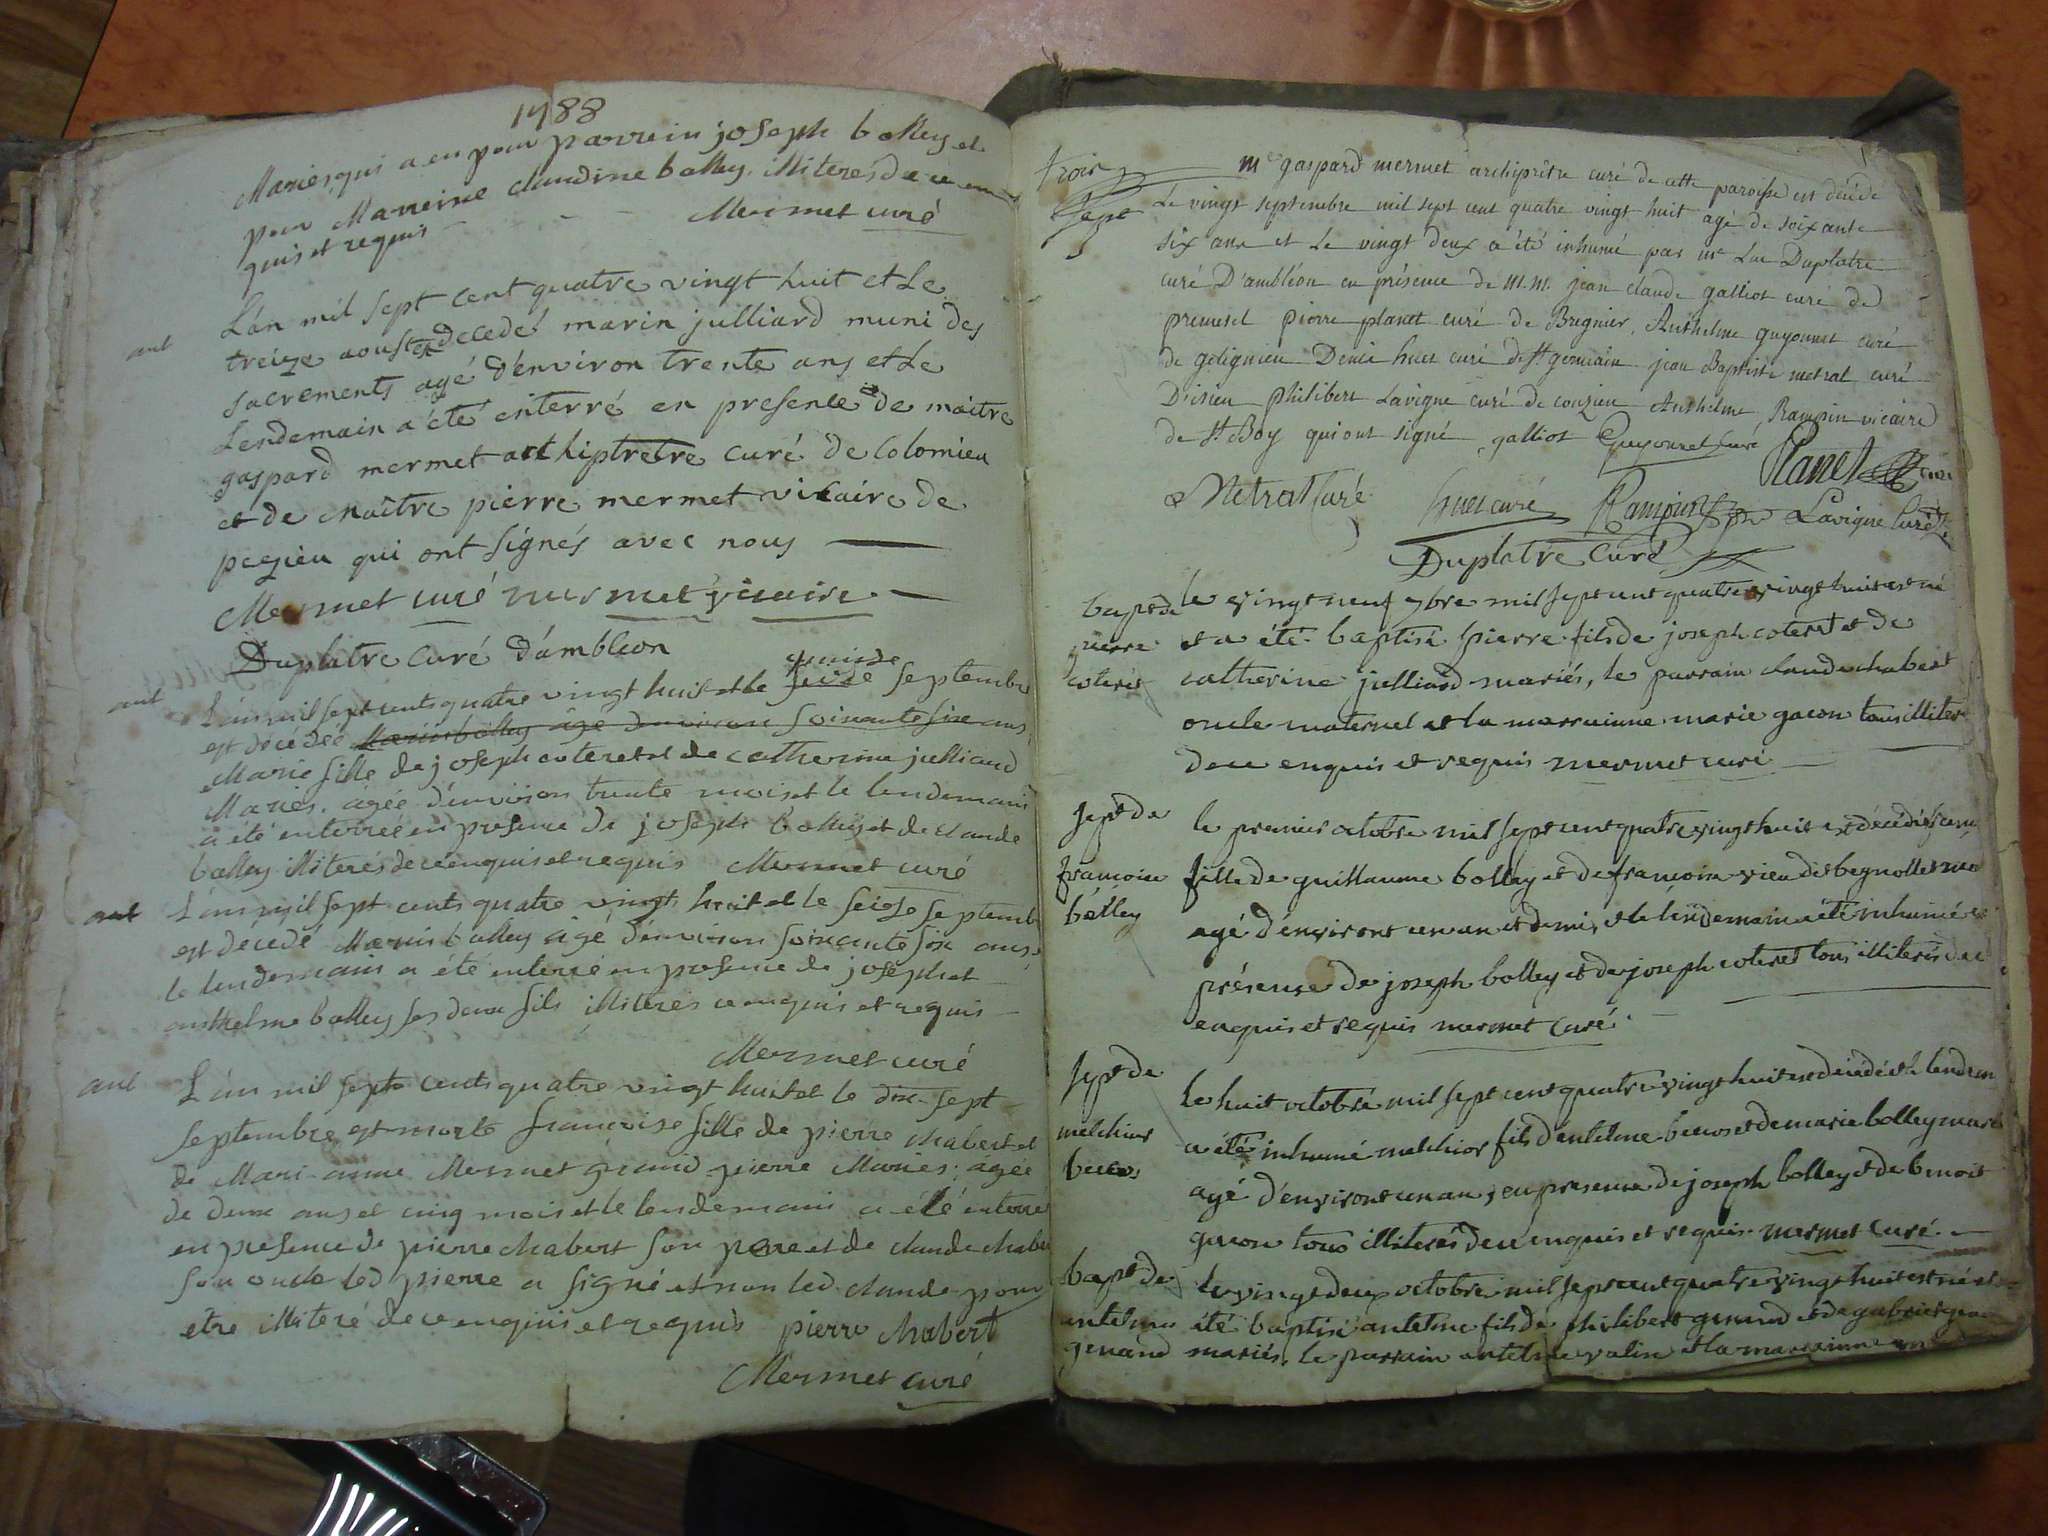 1788
Mariés, qui a eu pour parrein joseph bolley et
pour Marreine claudine bolley, illiterés de ce en
quis et requis
Mermet curé
L'an mil sept cent quatre vingt huit et Le
ant
treize aoust est decedé marin julliard muni des
sacrements agé d'environ trente ans et Le
Lendemain a été enterré en presence de maître
gaspard mermet archiptretre curé de Colomieu
et de maître pierre mermet vicaire de
pezieu qui ont signés avec nous
Mermet curé mermet vicaire
Duplatre Curé d'ambleon
ant
L'an mil sept cents quatre vingt huit et le seize quinze septembre
est décédée Marin bolley agé d'environ soixante six ans
Marie fille de joseph coteret et de catherine julliard
Mariés, agée d'environ trente mois et le lendemain
a été enterrée en presence de joseph bolley et de claude
bolley illiterés de ce enquis et requis Mermet curé
ant
L'an mil sept cents quatre vingt huit et le seize septembre
est décedé Marin bolley agé d'environ soixante six ans
le lendemain a été enterré en presence de joseph et
anthelme bolley ses deux fils illiterés ce enquis et requis
Mermet curé
ant
L'an mil sept cents quatre vingt huit et le dix-sept
septembre est morte francoise fille de pierre chabert et
de Mari-anne Mermet grand pierre Mariés, agée
de deux ans et cinq mois et le lendemain a été enterrée
en presence de pierre chabert son pere et de claude chaber
son oncle led pierre a signé et non led claude pour
etre illiteré de ce enquis et requis pierre chabert
Mermet curé
trois
mre gaspard mermet archiprêtre curé de cette paroisse est décédé
Le vingt septembre mil sept cent quatre vingt huit agé de soixante
six ans et Le vingt deux a été inhumé par mre Luc Duplatre
curé D'ambléon en présence de M.M. jean claude galliot curé de
premesel pierre planet curé de Bregnier, Anthelme guyonnet curé
de gelignieu Denis huet curé de St germain jean Baptiste metral curé
D'isieu philibert Lavigne curé de conzieu Anthelme Rampin vicaire
de St Boy qui ont signé galliot Guyonnet curé
Planet curé
Metral Curé huet curé Rampin Lavigne Curé
Duplatre Curé
bapt de
pierre
coteret
le vingt neuf 7bre mil sept cent quatre vingt huit est né
et a été baptisé pierre fils de joseph coteret et de
catherine julliard mariés, le parrain claude chabert
oncle maternel et la marrainne marie gacon tous illiter
de ce enquis et requis mermet curé
sept de
francoise
bolley
le premier octobre mil sept cent quatre vingt huit est décédée
fille de guillaume bolley et de francoise
agé d'environt un an et demi, et le lendemain a été inhumé
présence de joseph bolley et de joseph coteret tous illiterés de ce
enquis et requis mermet Curé
sept de
melchior
le huit octobre mil sept cent quatre vingt huit est décédé et le lendem
a été inhumé melchior fils d'antelme et de marie bolley marié
agé d'environt un an, en presence de joseph bolley et de benoit
gacon tous illiterés de ce enquis et requis mermet Curé
bapt de
antelme
genand
le vingt deux octobre mil sept cent quatre vingt huit est né et
été baptisé antelme fils de philibert genand et de
mariés, le parrain antelme valin et la marrainne